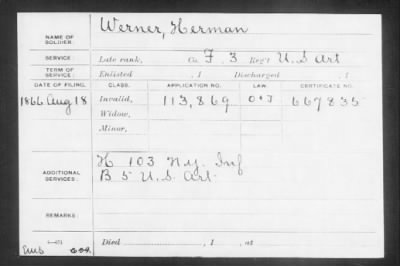 NAME OF SOLDIER: Werner, Herman
SERVICE: Late rank, Co. F. 3 Reg't U.S Art
TERM OF SERVICE: Enlisted , 1 Discharged , 1
DATE OF FILING. CLASS. APPLICATION NO. LAW. CERTIFICATE NO.
1866 Aug 18 Invalid, 113,869 667835
Widow,
Minor,
ADDITIONAL SERVICES: H 103 N.Y. Inf
B 5 U.S. Art.
REMARKS:
Died , 1 , at